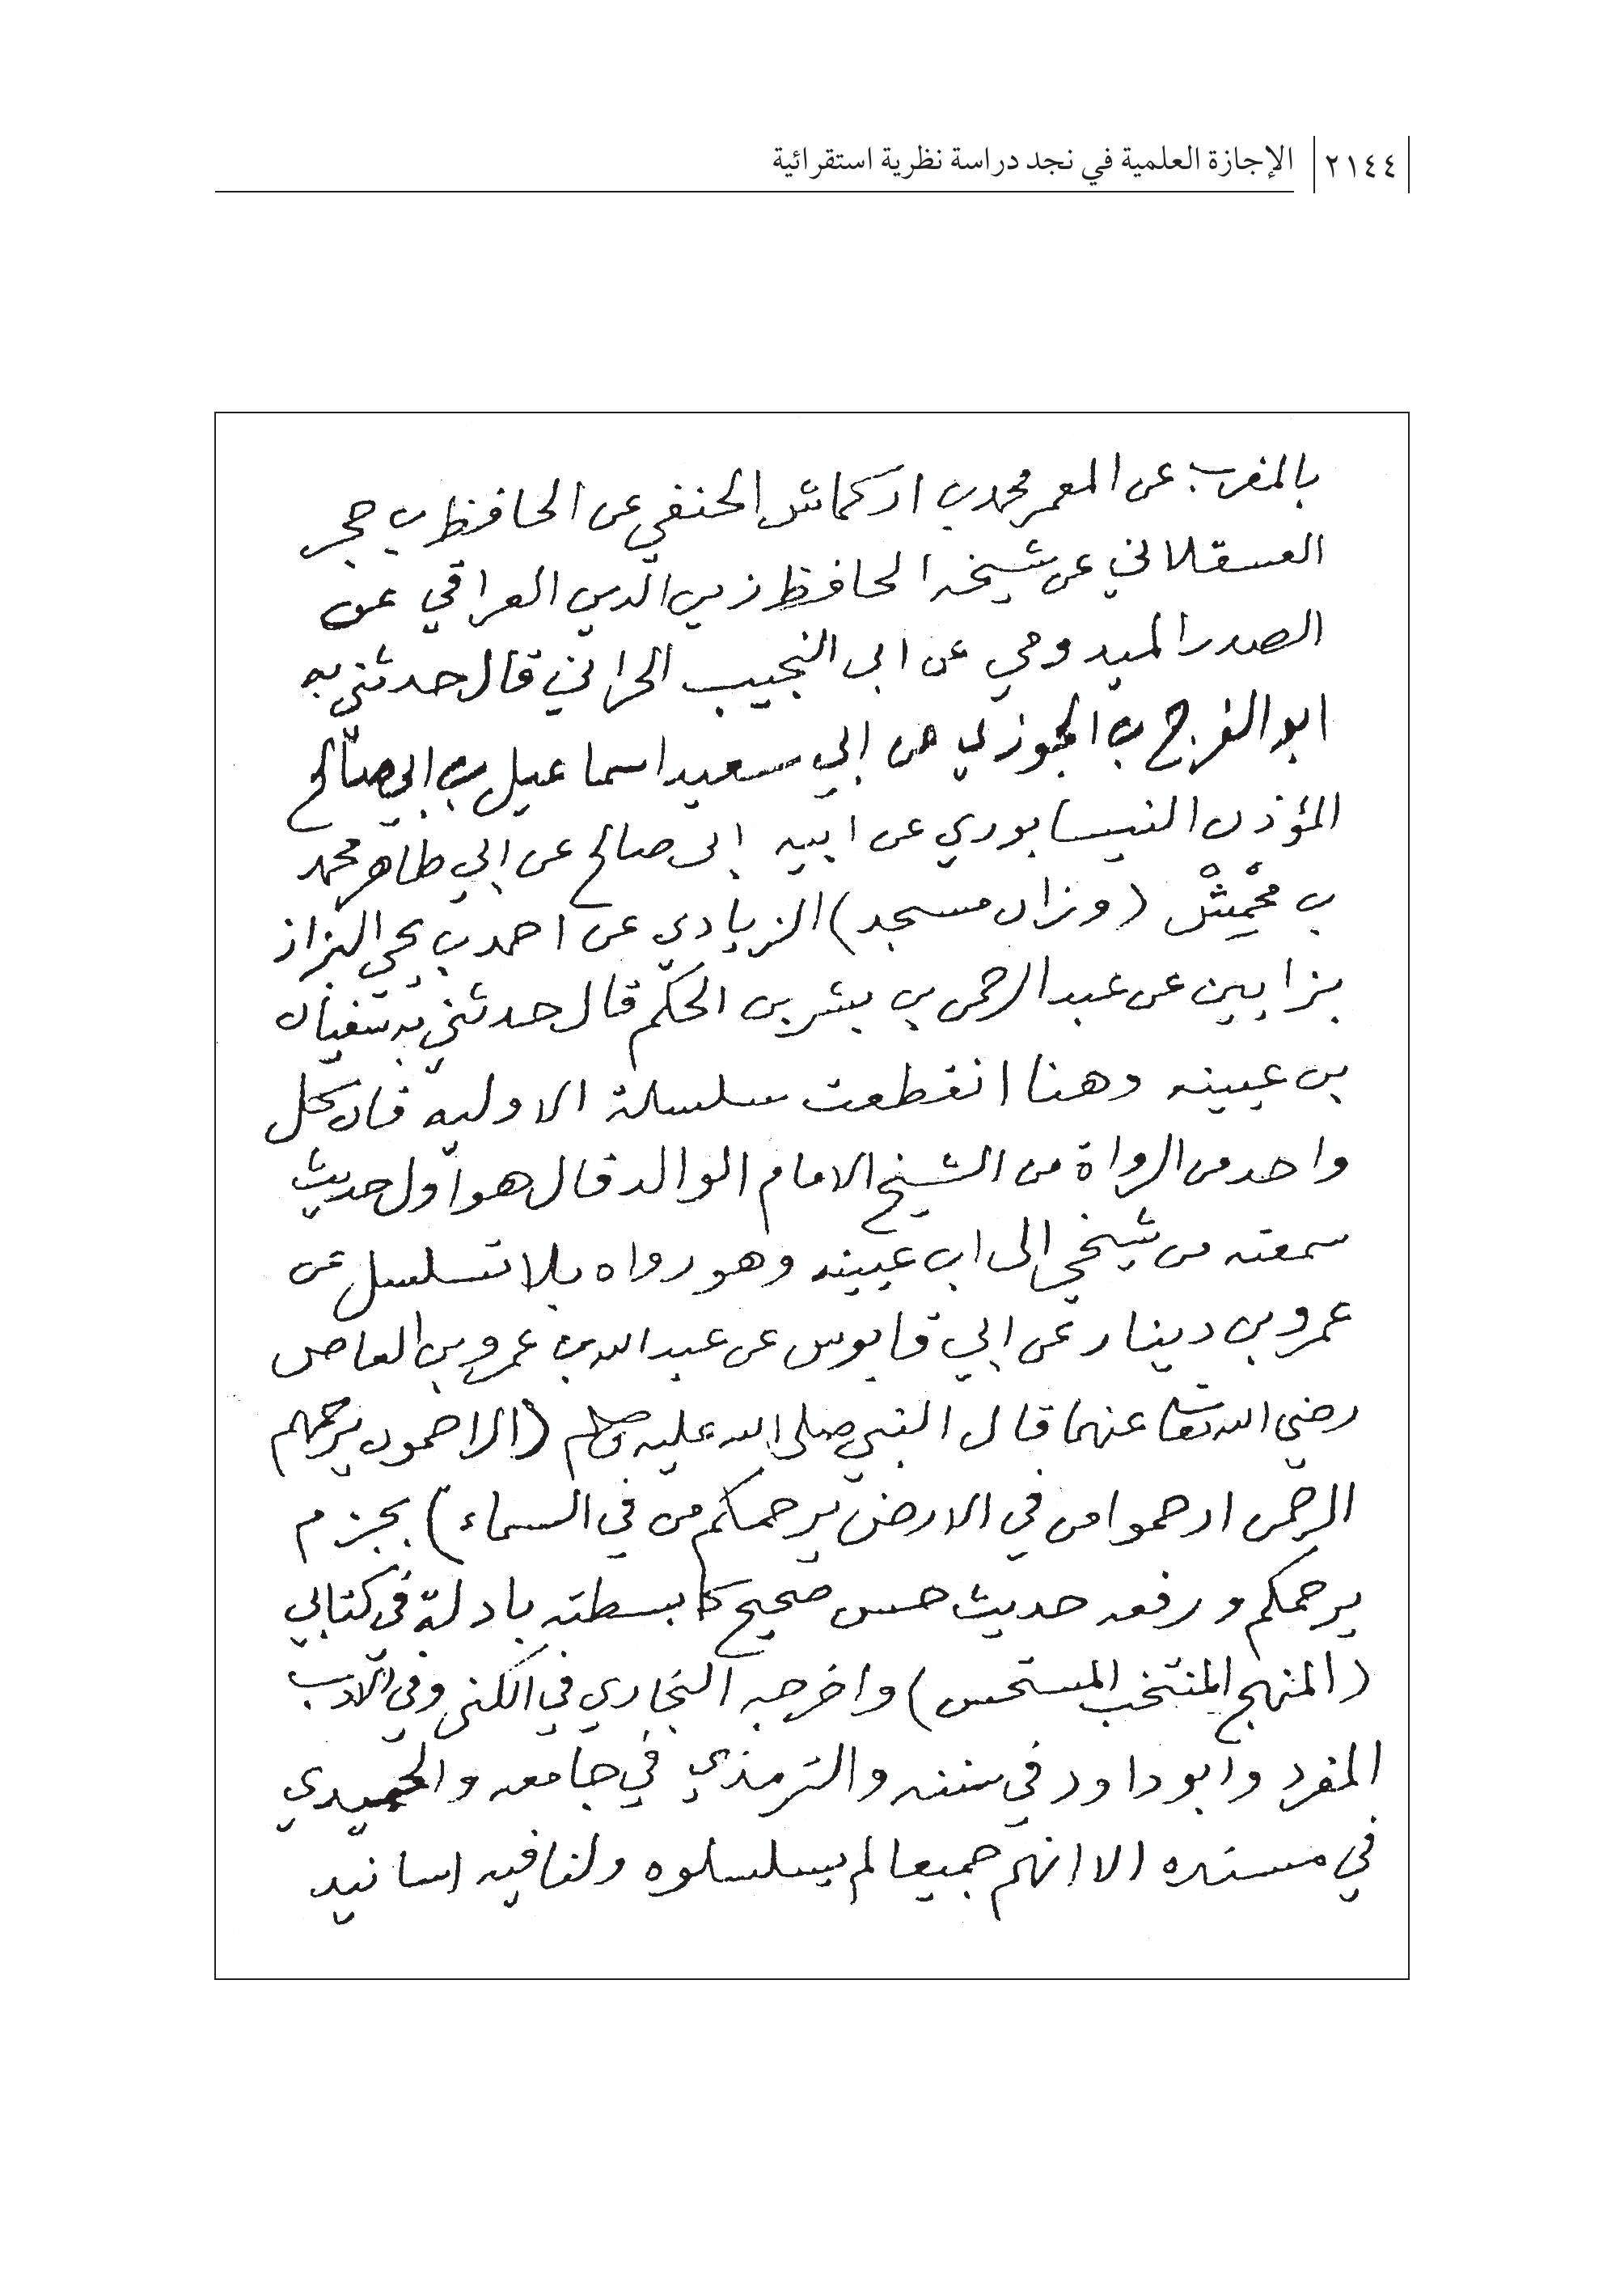 ٢١٤٤ الإجازة العلمية في نجد دراسة نظرية استقرائية
بالمغرب عن المعمر محمد بن اركماش الحنفي عن الحافظ بن حجر
العسقلاني عن شيخه الحافظ زين الدين العراقي عن
الصدر الميدومي عن ابى النجيب الحراني قال حدثني به
ابو الفرج بن الجوزي عن ابي سعيد اسماعيل بن ابي صالح
المؤذن النيسابوري عن ابيه ابى صالح عن ابي طاهر محمد
بن محْمِشْ (وزان مسجد) الزيادي عن احمد بن يحي البزاز
بزايين عن عبد الرحمن بن بشر بن الحكم قال حدثني به سفيان
بن عيينه وهنا انقطعت سلسلة الاوليه فان كل
واحد من الرواة من الشيخ الامام الوالد قال هو اول حديث
سمعته من شيخي الى ابن عيينه وهو رواه بلا تسلسل عن
عمرو بن دينار عن ابي قابوس عن عبد الله بن عمرو بن العاص
رضي الله تعا عنهما قال النبي صلى الله عليه وسلم (الراحمون يرحمهم
الرحمن ارحموا من في الارض يرحمكم من في السماء) بجزم
يرحمكم ورفعه حديث حسن صحيح كما بسطته بادلة في كتابي
(المنهج المنتخب المستحسن) واخرجه البخاري في الكنى وفي الادب
المفرد وابو داود في سننه والترمذي في جامعه والحميدي
في مسنده الا انهم جميعا لم يسلسلوه ولنا فيه اسانيد